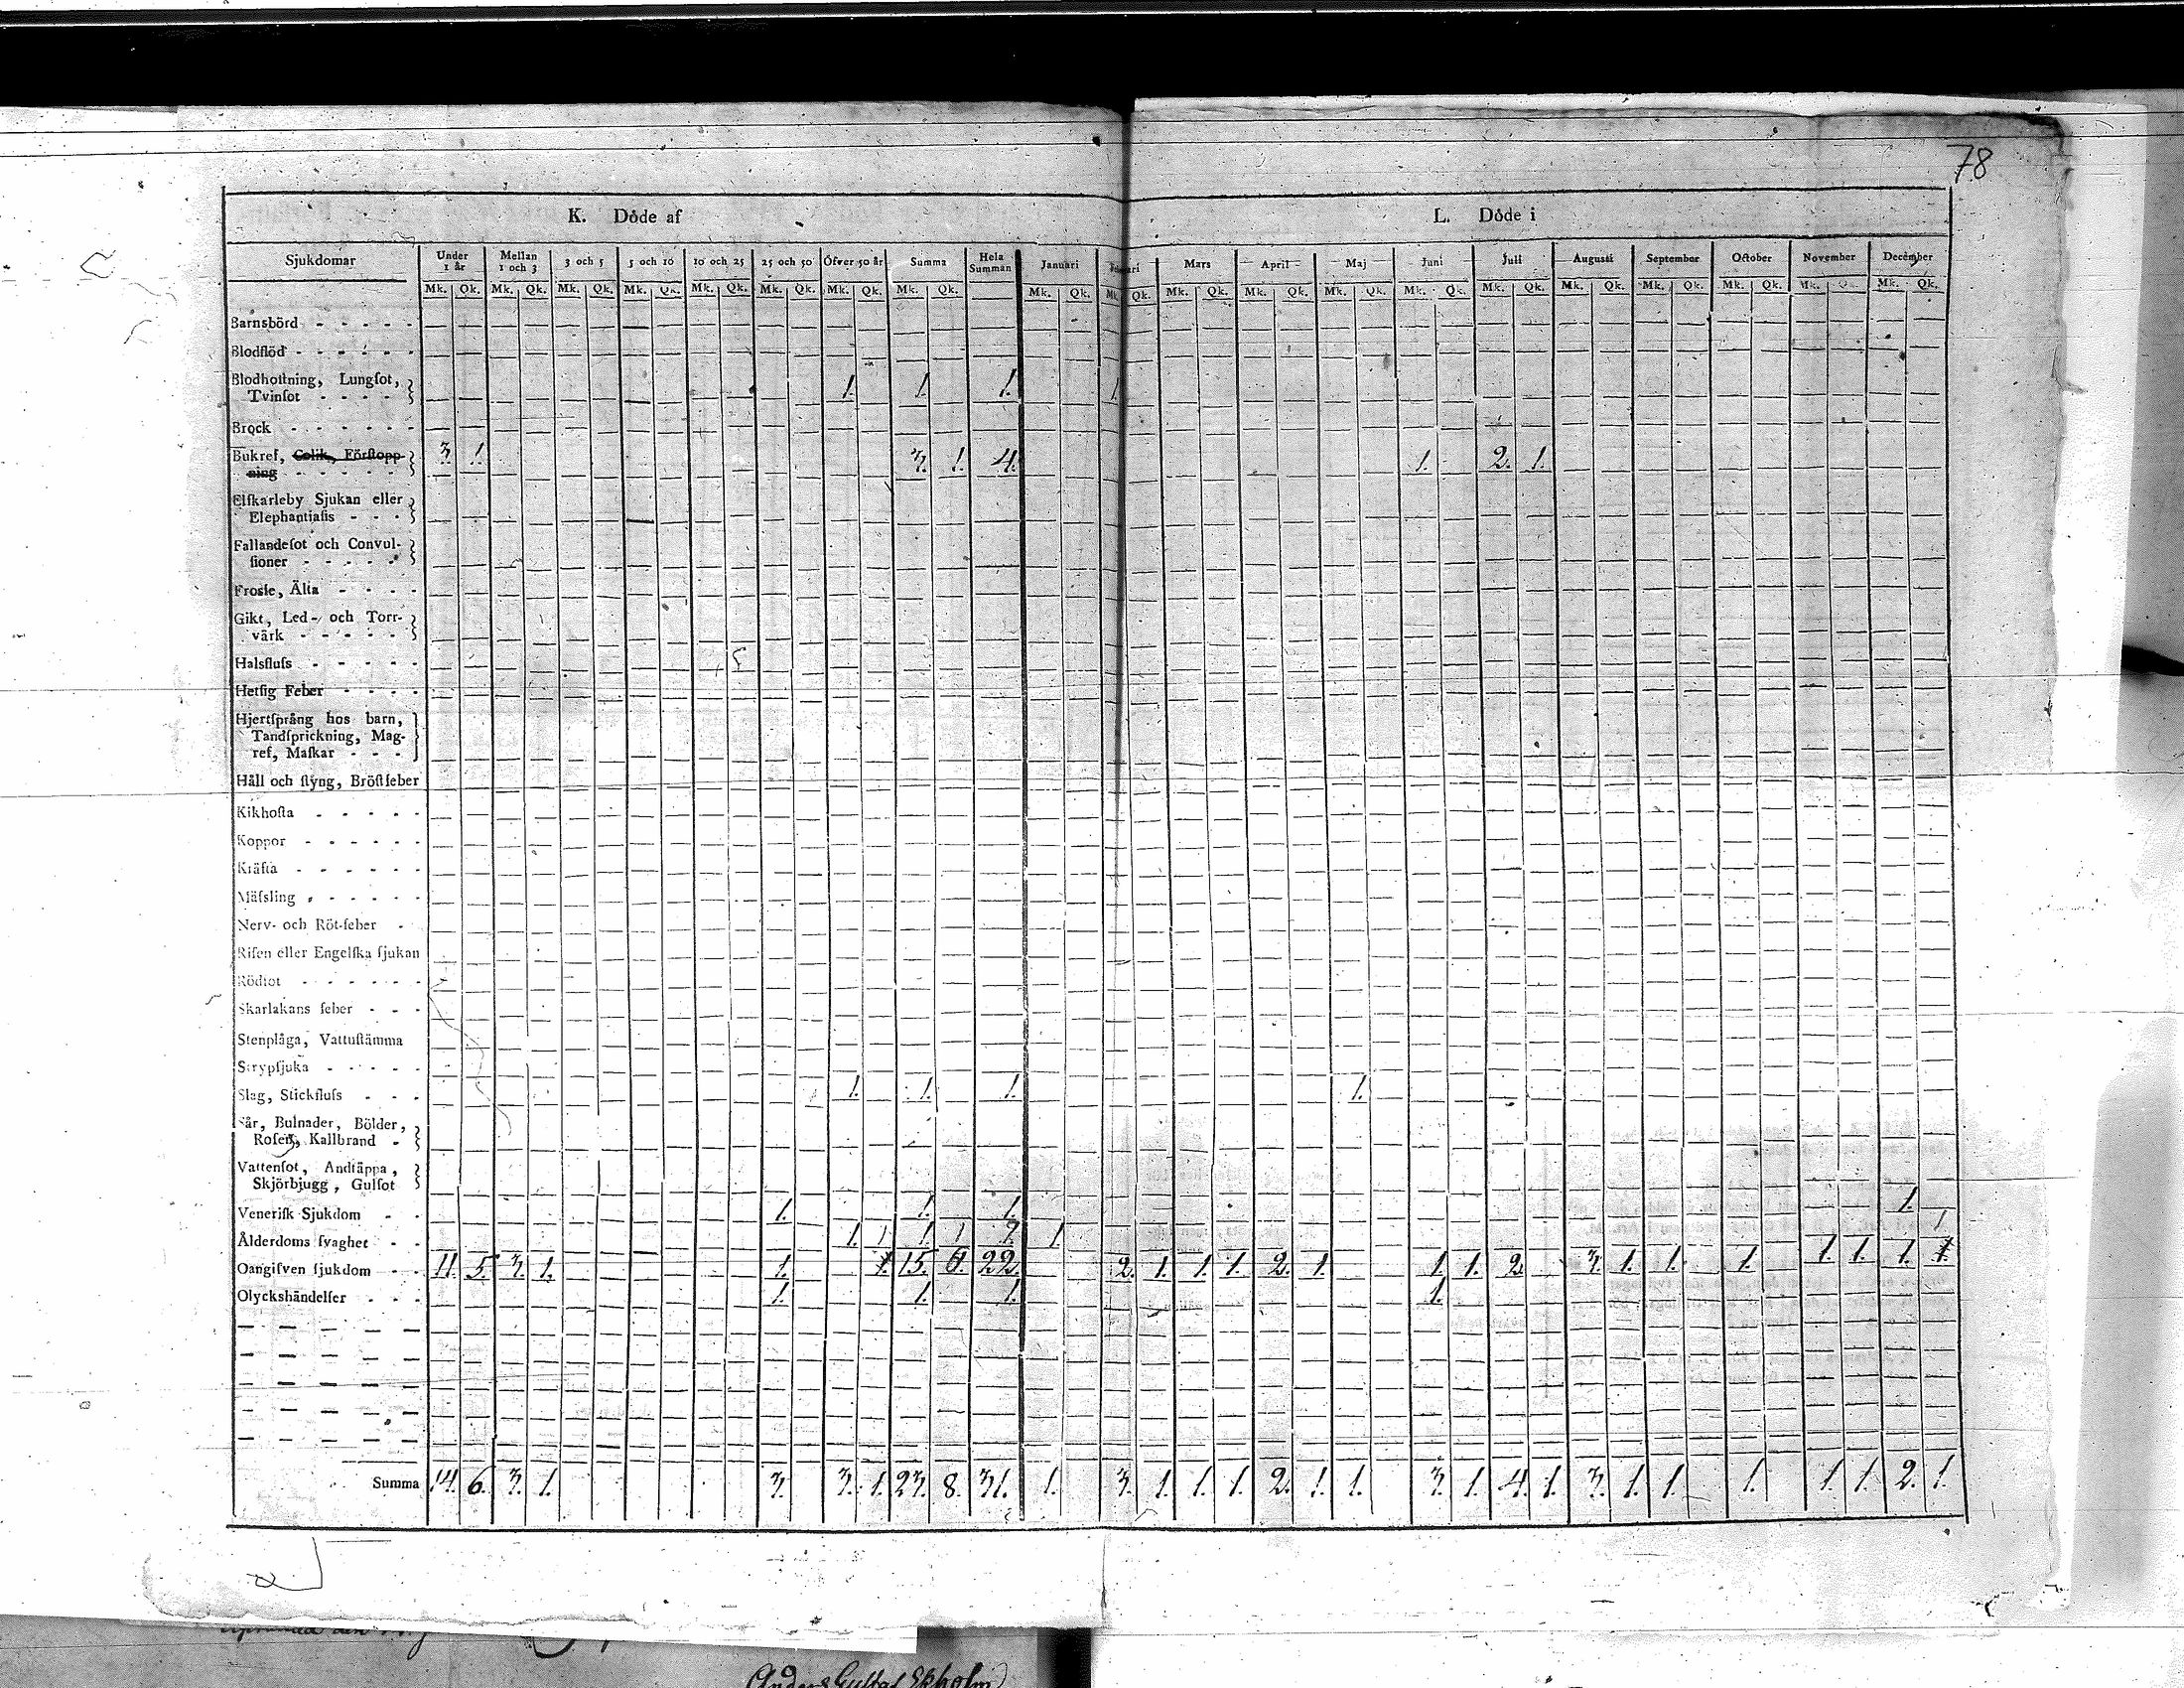 78
K. Döde af L. Döde i
Sjukdomar Under 1 år Mellan 1 och 3 3 och 5 5 och 10 10 och 25 25 och 50 Öfver 50 år Summa Hela Summan Januari Mars April Maj Juni Juli Augusti September October November December
Mk. Qk. Mk. Qk. Mk. Qk. Mk. Qk. Mk. Qk. Mk. Qk. Mk. Qk. Mk. Qk. Mk. Qk. Mk. Qk. Mk. Qk. Mk. Qk. Mk. Qk. Mk. Qk. Mk. Qk. Mk. Qk. Mk. Qk. Mk. Qk. Mk. Qk. Mk. Qk.
Barnsbörd
Blodflöd
Blodhostning, Lungsot,
Tvinsot 1. 1. 1. 1.
Brock
Bukref, Colik, Förstopp- 3. 1. 3. 1. 4. 1. 2. 1.
ning
Elfkarleby Sjukan eller
Elephantiasis
Fallandesot och Convul-
sioner
Frosse, Älta
Gikt, Led- och Torr-
värk
Halsfluss
Hetsig Feber
Hjertsprång hos barn,
Tandsprickning, Mag-
ref, Maskar
Håll och styng, Bröstfeber
Kikhosta
Koppor
Kräfta
Mässling
Nerv- och Röt-feber
Risen eller Engelska sjukan
Rödsot
Skarlakans feber
Stenplåga, Vattustämma
Strypsjuka
Slag, Stickfluss 1. 1. 1. 1.
Sår, Bulnader, Bölder,
Rosen, Kallbrand
Vattensot, Andtäppa,
Skjörbjugg, Gulsot
Venerisk Sjukdom 1. 1. 1. 1.
Ålderdoms svaghet 1. 1 1 1 2. 1 1
Oangifven sjukdom 11. 5. 3. 1. 1. 15. 22. 2. 1. 1. 1. 2. 1. 1. 1. 2. 3. 1. 1. 1. 1. 1. 1.
Olyckshändelser 1. 1. 1. 1.
Summa 14. 6. 3. 1. 3. 3. 1. 23. 8. 31. 1. 3. 1. 1. 1. 2. 1. 1. 3. 1. 4. 1. 3. 1. 1. 1. 1. 1. 2. 1.
Anders Gustaf Ekholm